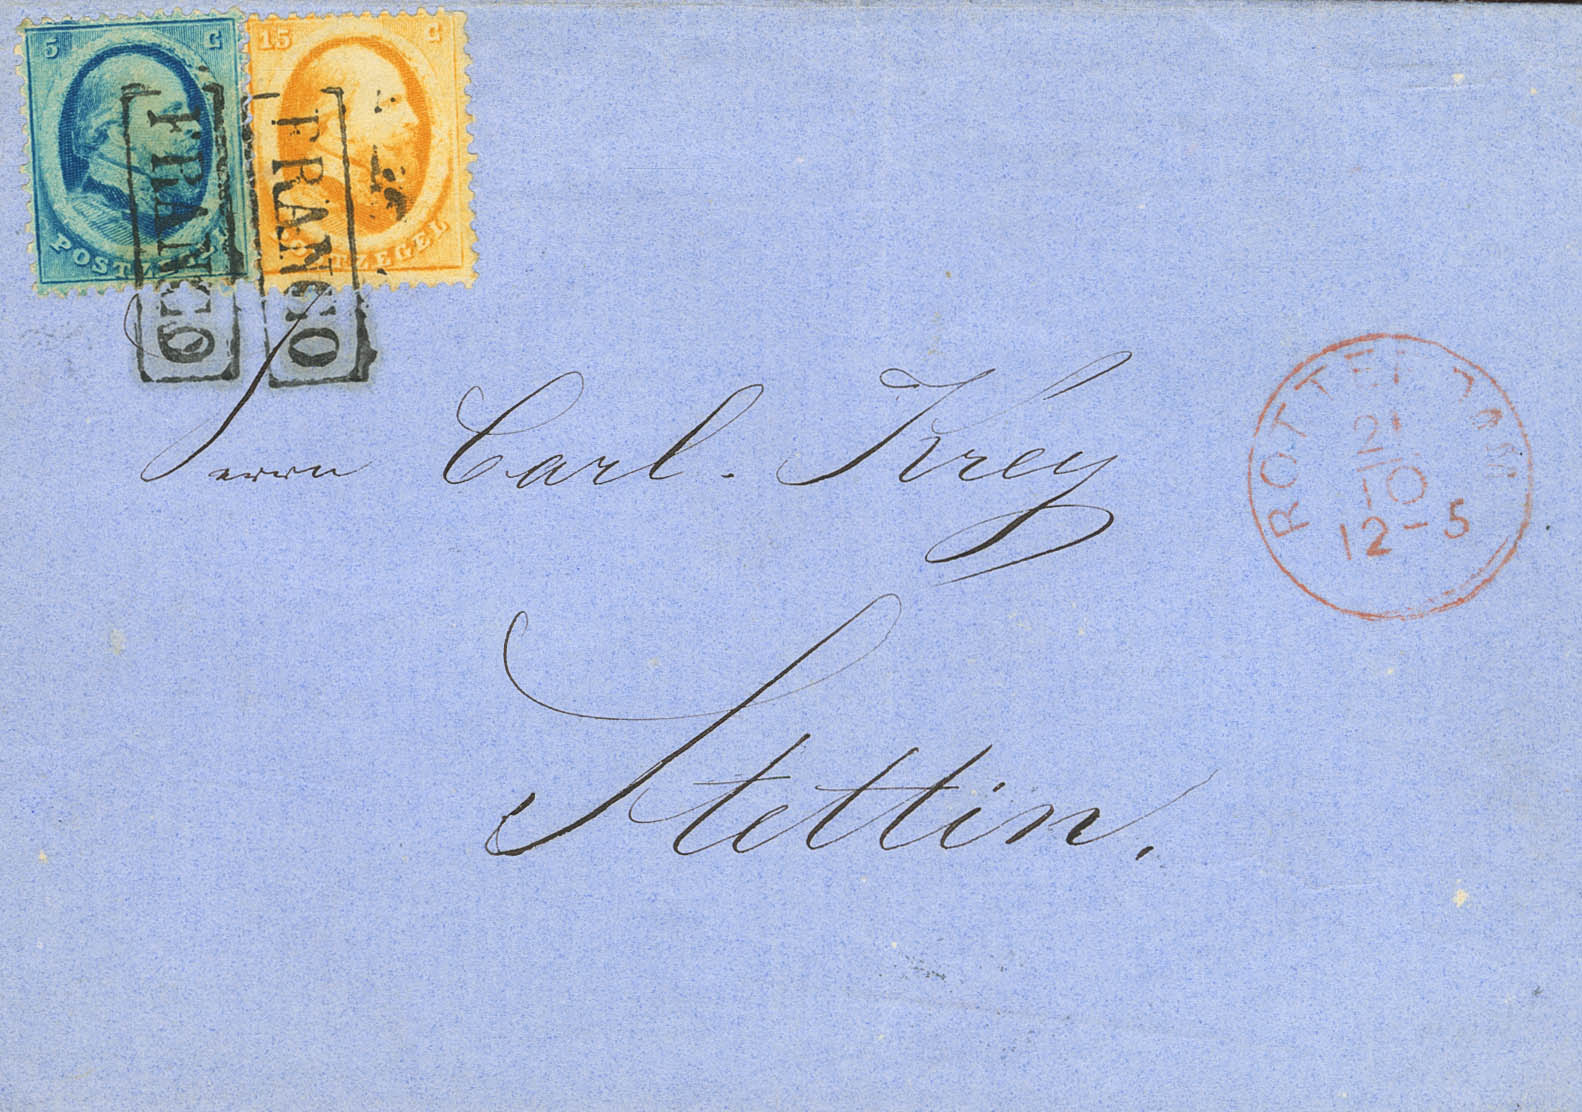 5 C
POSTZ
15 C
TZEGEL
FRANCO
FRANCO
Herrn Carl. Krey
Stettin.
ROTTE DAM
21
10
12-5